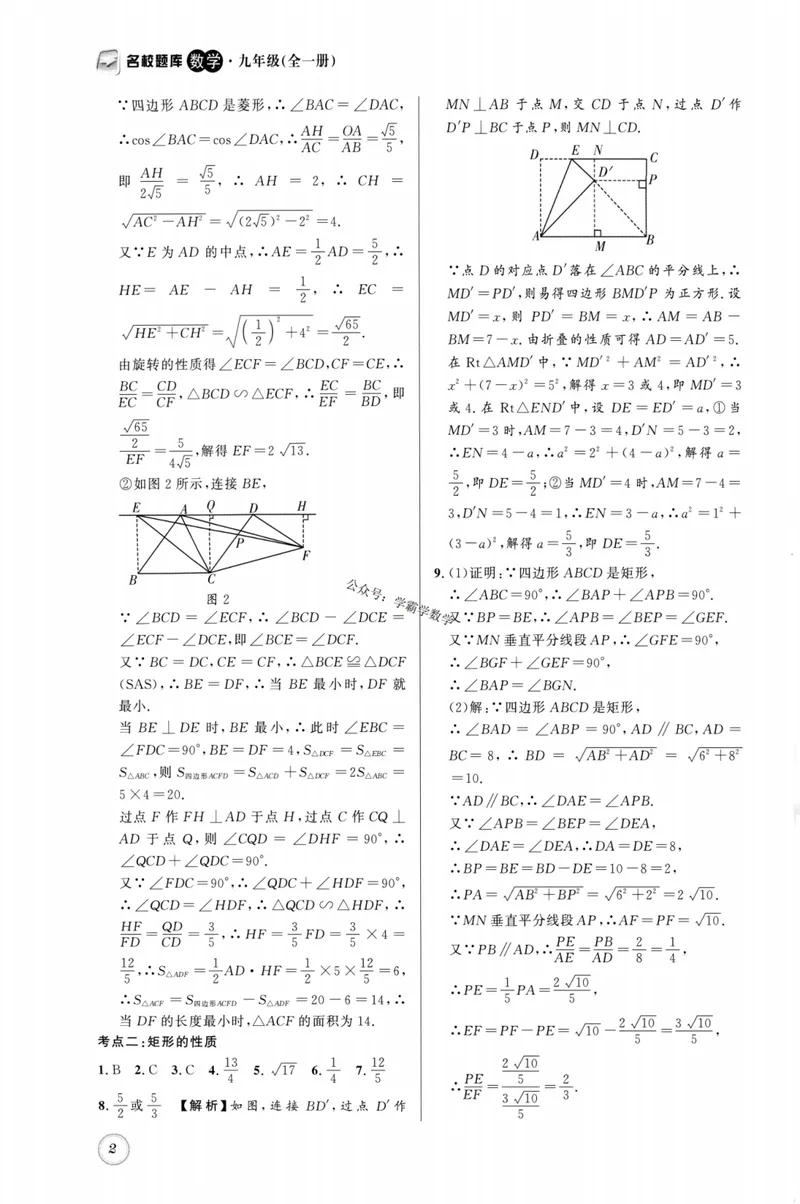 名校题库 数学·九年级(全一册)
∵四边形 ABCD 是菱形,∴∠BAC=∠DAC,
∴cos∠BAC=cos∠DAC,∴AH/AC=OA/AB=√5/5,
即 AH/(2√5) = √5/5, ∴ AH = 2, ∴ CH =
√(AC²-AH²)=√((2√5)²-2²)=4.
又∵E 为 AD 的中点,∴AE=1/2AD=5/2,∴
HE= AE - AH = 1/2, ∴ EC =
√(HE²+CH²)=√((1/2)²+4²)=√65/2.
由旋转的性质得∠ECF=∠BCD,CF=CE,∴
BC/EC=CD/CF,△BCD∽△ECF,∴EC/EF=BC/BD,即
(√65/2)/EF=5/(4√5),解得 EF=2√13.
②如图 2 所示,连接 BE,
E A Q D H
P
F
B C
图 2
∵∠BCD = ∠ECF,∴∠BCD - ∠DCE =
∠ECF-∠DCE,即∠BCE=∠DCF.
又∵BC=DC,CE=CF,∴△BCE≌△DCF
(SAS),∴BE=DF,∴当 BE 最小时,DF 就
最小.
当 BE⊥DE 时,BE 最小,∴此时∠EBC=
∠FDC=90°,BE=DF=4,S△DCF=S△EBC=
S△ABC,则 S四边形ACFD=S△ACD+S△DCF=2S△ABC=
5×4=20.
过点 F 作 FH⊥AD 于点 H,过点 C 作 CQ⊥
AD 于点 Q,则∠CQD=∠DHF=90°,∴
∠QCD+∠QDC=90°.
又∵∠FDC=90°,∴∠QDC+∠HDF=90°,
∴∠QCD=∠HDF,∴△QCD∽△HDF,∴
HF/FD=QD/CD=3/5,∴HF=3/5FD=3/5×4=
12/5,∴S△ADF=1/2AD·HF=1/2×5×12/5=6,
∴S△ACF=S四边形ACFD-S△ADF=20-6=14,∴
当 DF 的长度最小时,△ACF 的面积为 14.
考点二:矩形的性质
1. B 2. C 3. C 4. 13/4 5. √17 6. 1/4 7. 12/5
8. 5/2或5/3 【解析】如图,连接 BD′,过点 D′作
2
MN⊥AB 于点 M,交 CD 于点 N,过点 D′作
D′P⊥BC 于点 P,则 MN⊥CD.
D E N C
D′ P
A M B
∵点 D 的对应点 D′落在∠ABC 的平分线上,∴
MD′=PD′,则易得四边形 BMD′P 为正方形.设
MD′=x,则 PD′=BM=x,∴AM=AB-
BM=7-x.由折叠的性质可得 AD=AD′=5.
在 Rt△AMD′中,∵MD′²+AM²=AD′²,∴
x²+(7-x)²=5²,解得 x=3 或 4,即 MD′=3
或 4.在 Rt△END′中,设 DE=ED′=a,①当
MD′=3 时,AM=7-3=4,D′N=5-3=2,
∴EN=4-a,∴a²=2²+(4-a)²,解得 a=
5/2,即 DE=5/2;②当 MD′=4 时,AM=7-4=
3,D′N=5-4=1,∴EN=3-a,∴a²=1²+
(3-a)²,解得 a=5/3,即 DE=5/3.
9. (1)证明:∵四边形 ABCD 是矩形,
∴∠ABC=90°,∴∠BAP+∠APB=90°.
又∵BP=BE,∴∠APB=∠BEP=∠GEF.
又∵MN 垂直平分线段 AP,∴∠GFE=90°,
∴∠BGF+∠GEF=90°,
∴∠BAP=∠BGN.
(2)解:∵四边形 ABCD 是矩形,
∴∠BAD=∠ABP=90°,AD∥BC,AD=
BC=8,∴BD=√(AB²+AD²)=√(6²+8²)
=10.
∵AD∥BC,∴∠DAE=∠APB.
又∵∠APB=∠BEP=∠DEA,
∴∠DAE=∠DEA,∴DA=DE=8,
∴BP=BE=BD-DE=10-8=2,
∴PA=√(AB²+BP²)=√(6²+2²)=2√10.
∵MN 垂直平分线段 AP,∴AF=PF=√10.
又∵PB∥AD,∴PE/AE=PB/AD=2/8=1/4,
∴PE=1/5PA=2√10/5,
∴EF=PF-PE=√10-2√10/5=3√10/5,
∴PE/EF=(2√10/5)/(3√10/5)=2/3.
公众号:学霸学数学